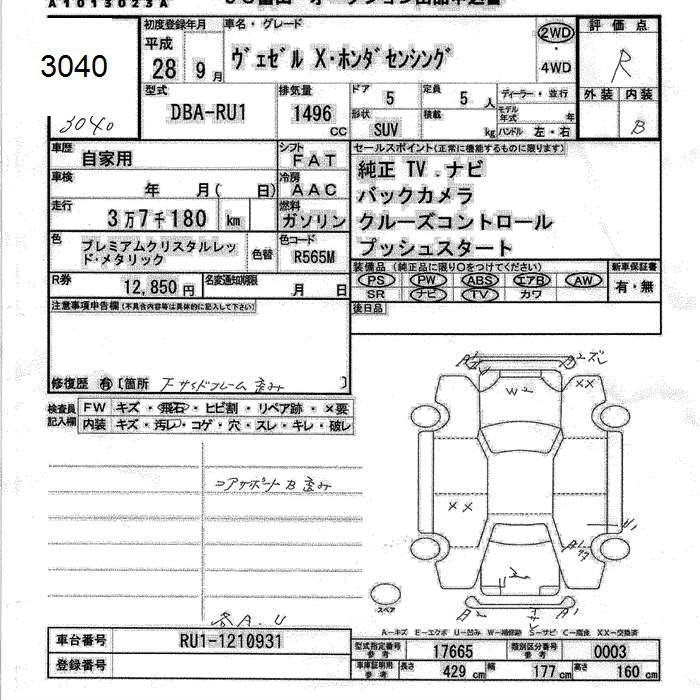 A1013023A
3040
3040
初度登録年月
平成
28年 9月
車名・グレード
ヴェゼル X・ホンダセンシング
2WD
・
4WD
評価点
R
外装 内装
B
型式
DBA-RU1
排気量
1496 CC
ドア 5
定員 5 人
形状 SUV
積載 kg
ディーラー・並行
モデル年式 年
ハンドル 左・右
車歴 自家用
シフト FAT
車検 年 月( 日)
冷房 AAC
走行 3万7千180 km
燃料 ガソリン
色 プレミアムクリスタルレッド・メタリック
色替
色コード R565M
セールスポイント(正常に機能するものに限ります)
純正 TV.ナビ
バックカメラ
クルーズコントロール
プッシュスタート
装備品 (純正品に限り○をつけてください)
PS PW ABS エアB AW
SR ナビ TV カワ
新車保証書
有・無
後日品
R券 12,850 円
名変通知期限 月 日
注意事項申告欄 (不具合内容等は具体的に記入して下さい)
修復歴 有 〔箇所 下サイドフレーム歪み 〕
検査員記入欄
FW キズ・飛石・ヒビ割・リペア跡・×要
内装 キズ・汚レ・コゲ・穴・スレ・キレ・破レ
コアサポートB歪み
各A.U
W2
××
××
U1
スペア
A-キズ E-エクボ U-凹み W-補修跡 S-サビ C-腐食 XX-交換済
車台番号 RU1-1210931
登録番号
型式指定番号 参考 17665
類別区分番号 参考 0003
車庫証明用 参考 長さ 429 cm 幅 177 cm 高さ 160 cm